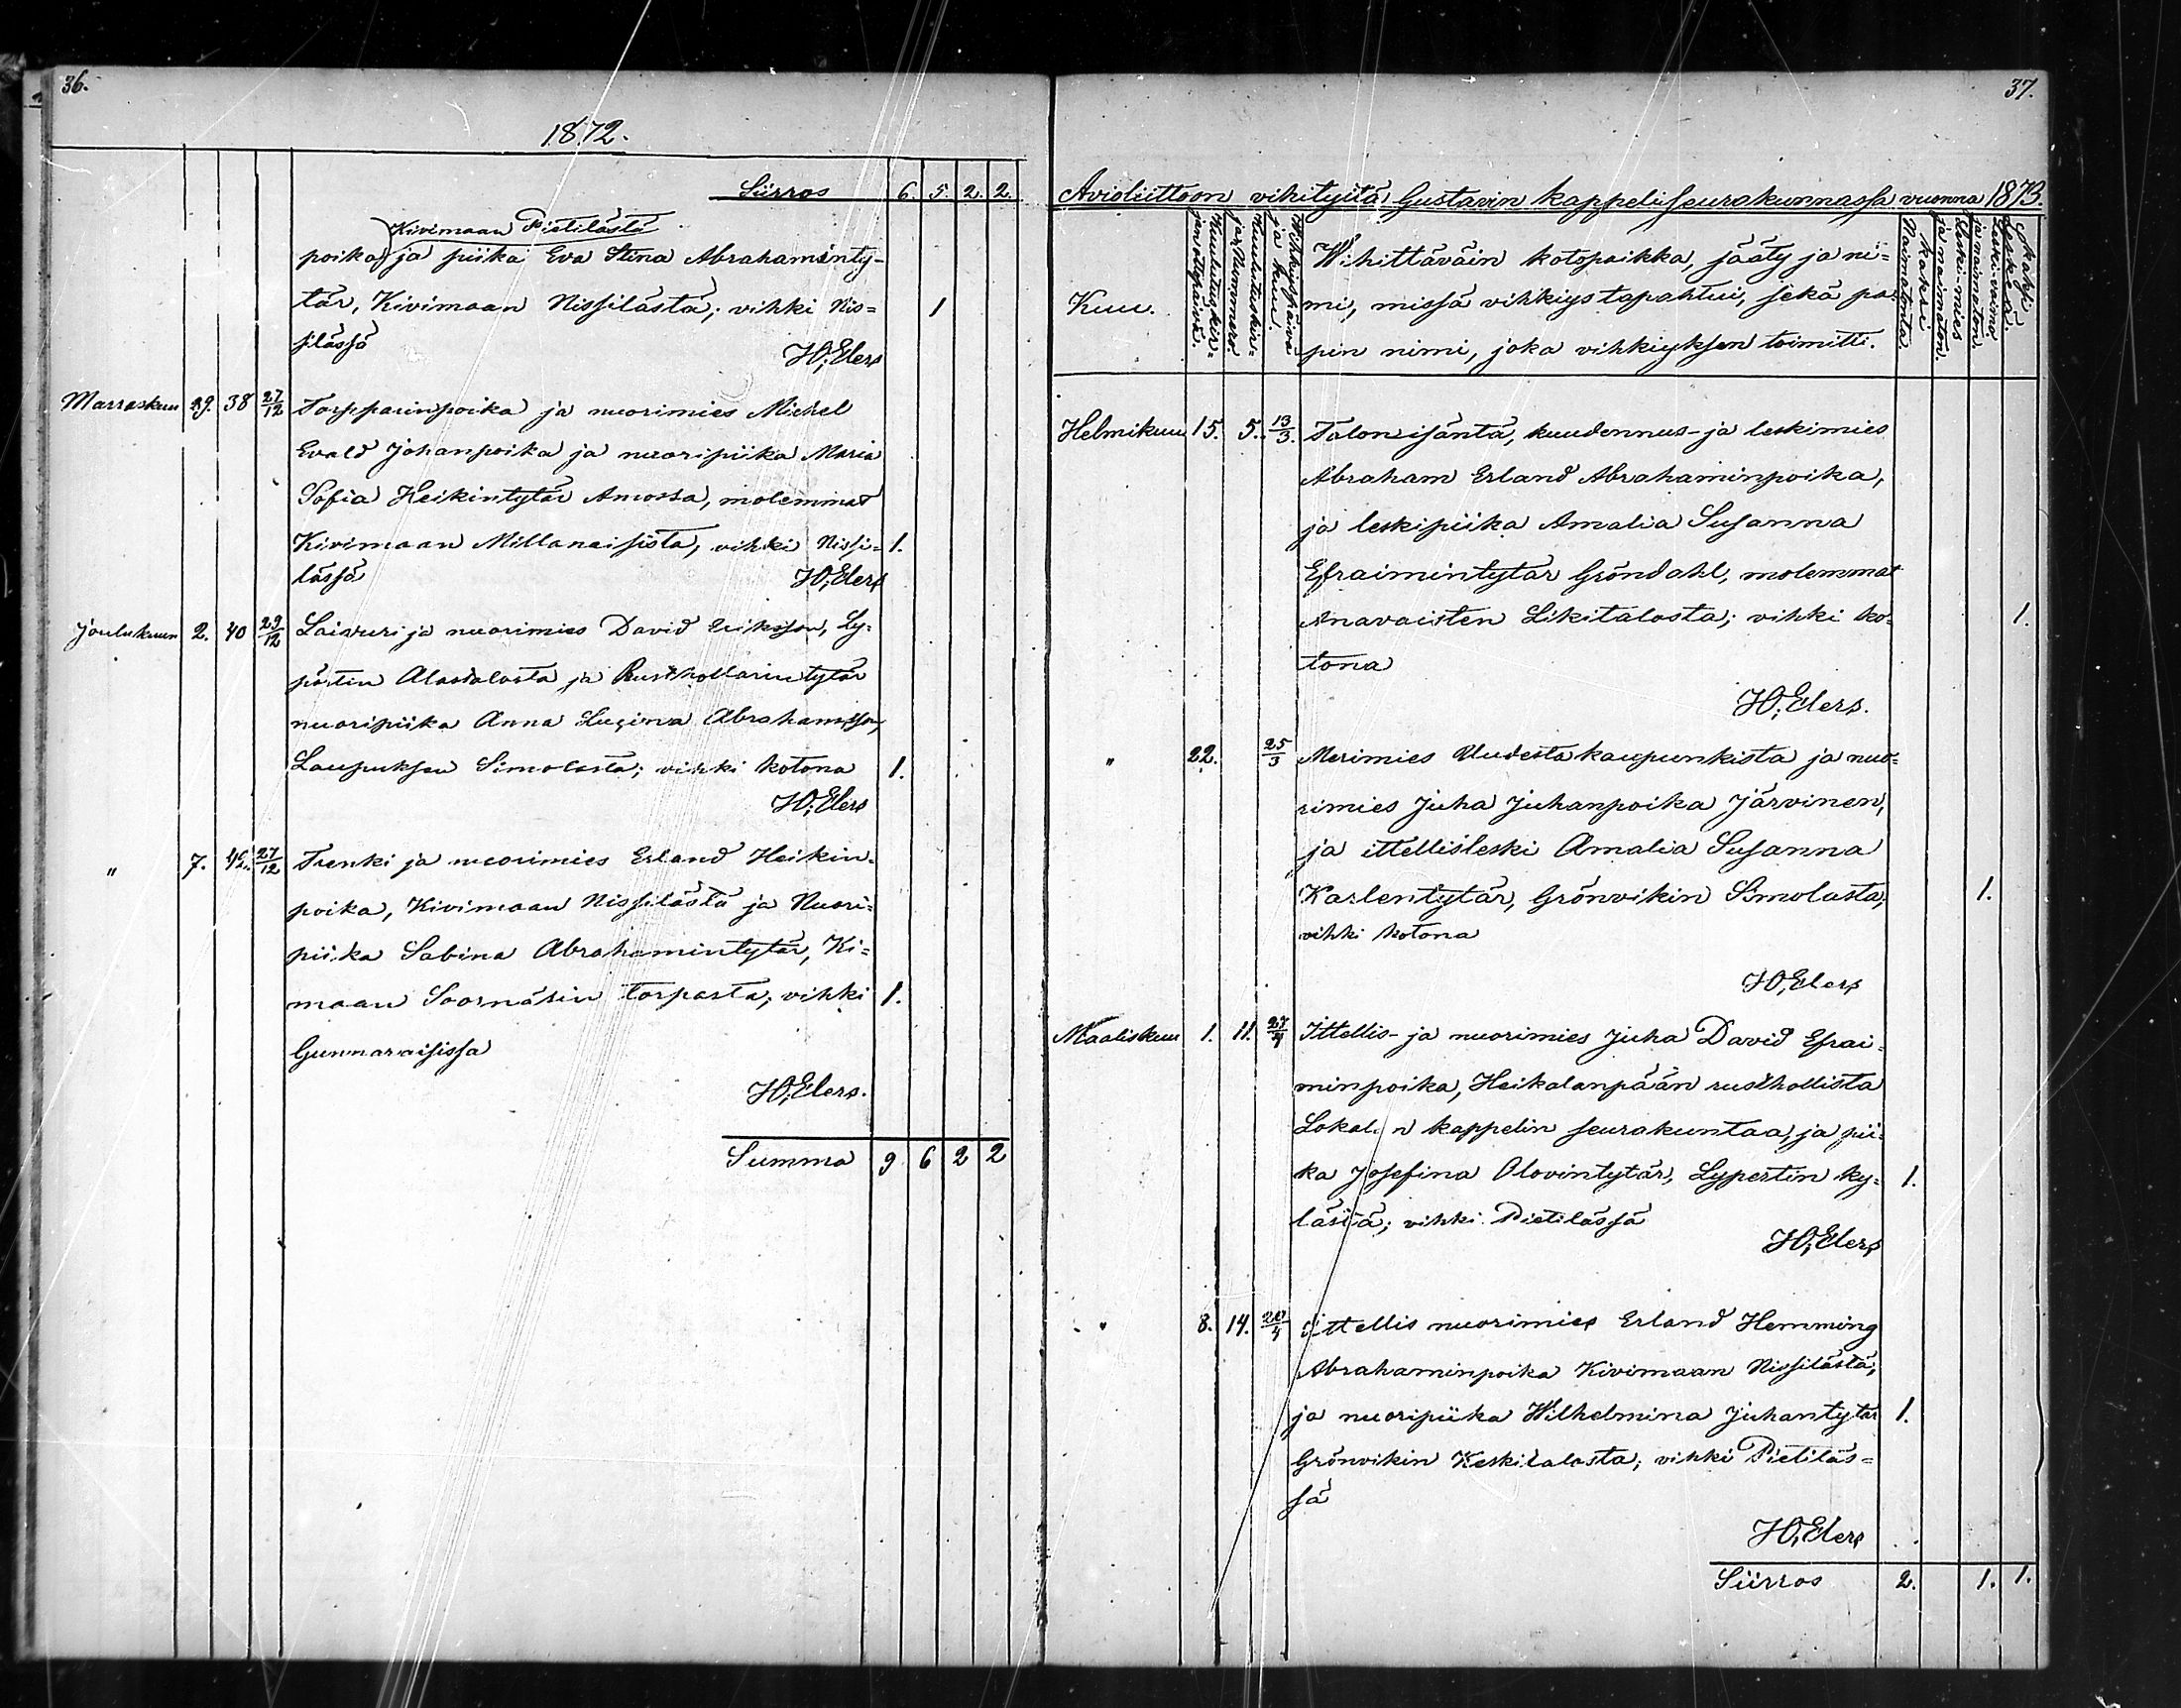 36.
1872.
Siirros 6. 5. 2. 2.
Kivimaan Pietilästä
poika ja piika Eva Stina Abrahaminty-
tär, Kivimaan Nissilästä; vihki Nis= 1
silässä
H. Elers
Marraskuu 29. 38 27/12 Torpparinpoika ja nuorimies Michel
Evald Johanpoika ja nuoripiika Maria
Sofia Heikintytär Amossa, molemmat
Kivimaan Millanaisista, vihki Nissi= 1.
lässä H. Elers
Joulukuun 2. 40 29/12 Laivuri ja nuorimies David Eriksson, Ly-
pertin Alastalosta ja Rusthollarintytär
nuoripiika Anna Abrahamsson,
Laupuksen Simolasta; vihki kotona 1.
H. Elers
" 7. 42. 27/12 Trenki ja nuorimies Erland Heikin-
poika, Kivimaan Nissilästä ja Nuori=
piika Sabina Abrahamintytär, Ki=
maan Soornäsin torpasta; vihki 1.
Gunnaraisissa
H. Elers.
Summa 9 6 2 2
37.
Avioliittoon vihityitä Gustavin kappeliseurakunnassa vuonna 1873.
Kuu.
Kuulutuskir=
jan ottopäivä.
Kuulutuskir=
jan Nummero.
Wihkiyspäivä
ja kuu.
Wihittäväin kotopaikka, sääty ja ni=
mi, missä vihkiys tapahtui, sekä pa-
pin nimi, joka vihkiyksen toimitti.
Kaksi
Naimatonta.
Leski-mies
ja naimaton.
Leski-vaimo
ja naimaton.
Kaksi
Leskeä.
Helmikuu 15. 5. 13/3. Talonisäntä, kuudennus- ja leskimies
Abraham Erland Abrahaminpoika,
ja leskipiika Amalia Susanna
Efraimintytär Gröndahl, molemmat
Anavaisten Likitalosta; vihki ko- 1.
tona
H. Elers.
" 22. 25/3 Merimies Uudestakaupunkista ja nuo=
rimies Juha Juhanpoika Järvinen,
ja ittellisleski Amalia Susanna
Karlentytär, Grönvikin Simolasta; 1.
vihki kotona
H. Elers
Maaliskuu 1. 11. 27/4 Ittellis- ja nuorimies Juha David Efrai-
minpoika, Heikolanpään rusthollista
Lokalan kappelin seurakuntaa, ja pii-
ka Josefina Olovintytär, Lypertin ky= 1.
lästä; vihki Pietilässä
H. Elers
" 8. 14. 20/4 Ittellis nuorimies Erland Hemming
Abrahaminpoika Kivimaan Nissilästä,
ja nuoripiika Wilhelmina Juhantytär 1.
Grönvikin Keskitalosta; vihki Pietiläs=
sä
H. Elers
Siirros 2. 1. 1.